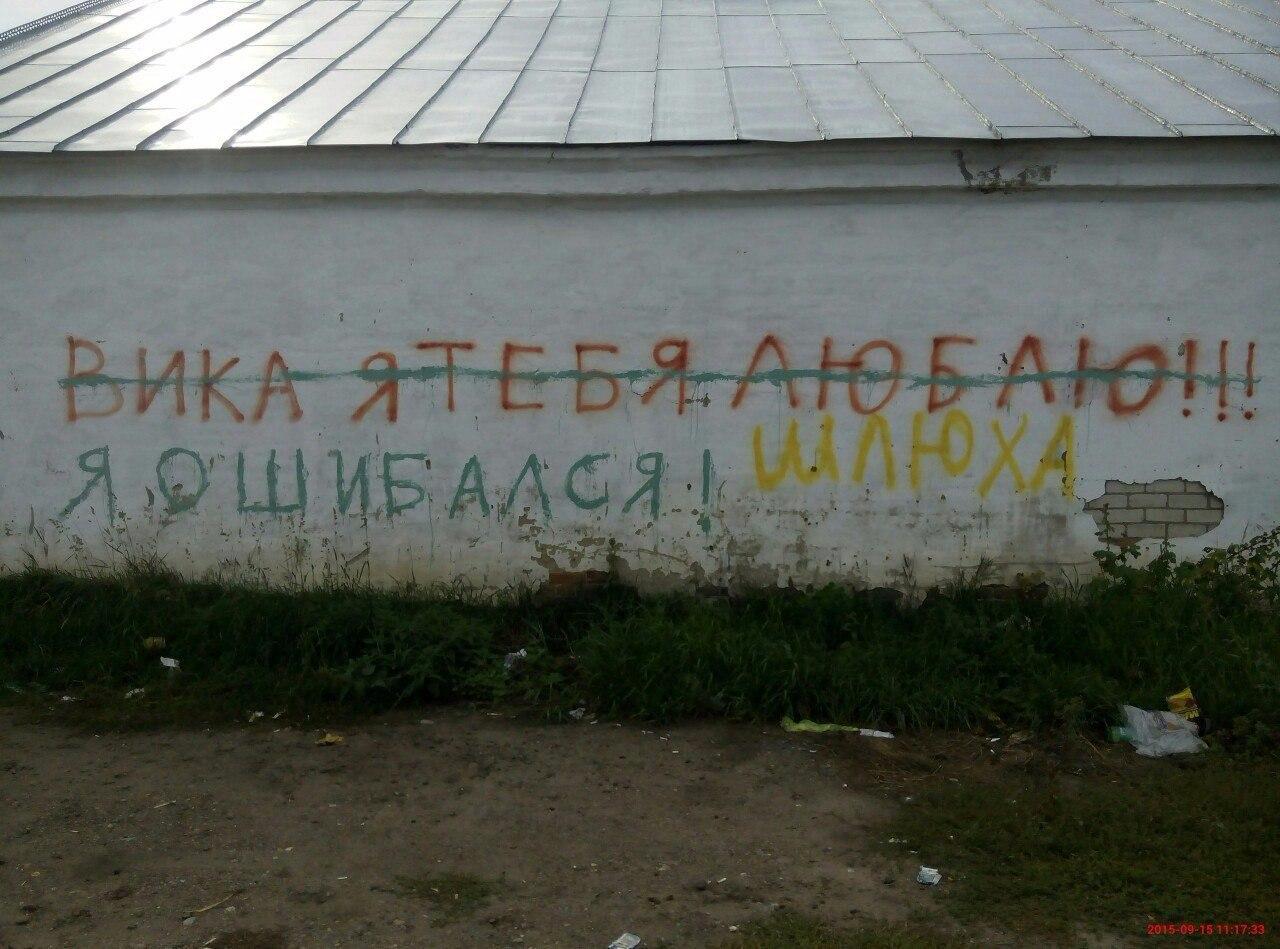 ВИКА Я ТЕБЯ ЛЮБЛЮ!!!
Я ОШИБАЛСЯ! ШЛЮХА
2015-09-15 11:17:33